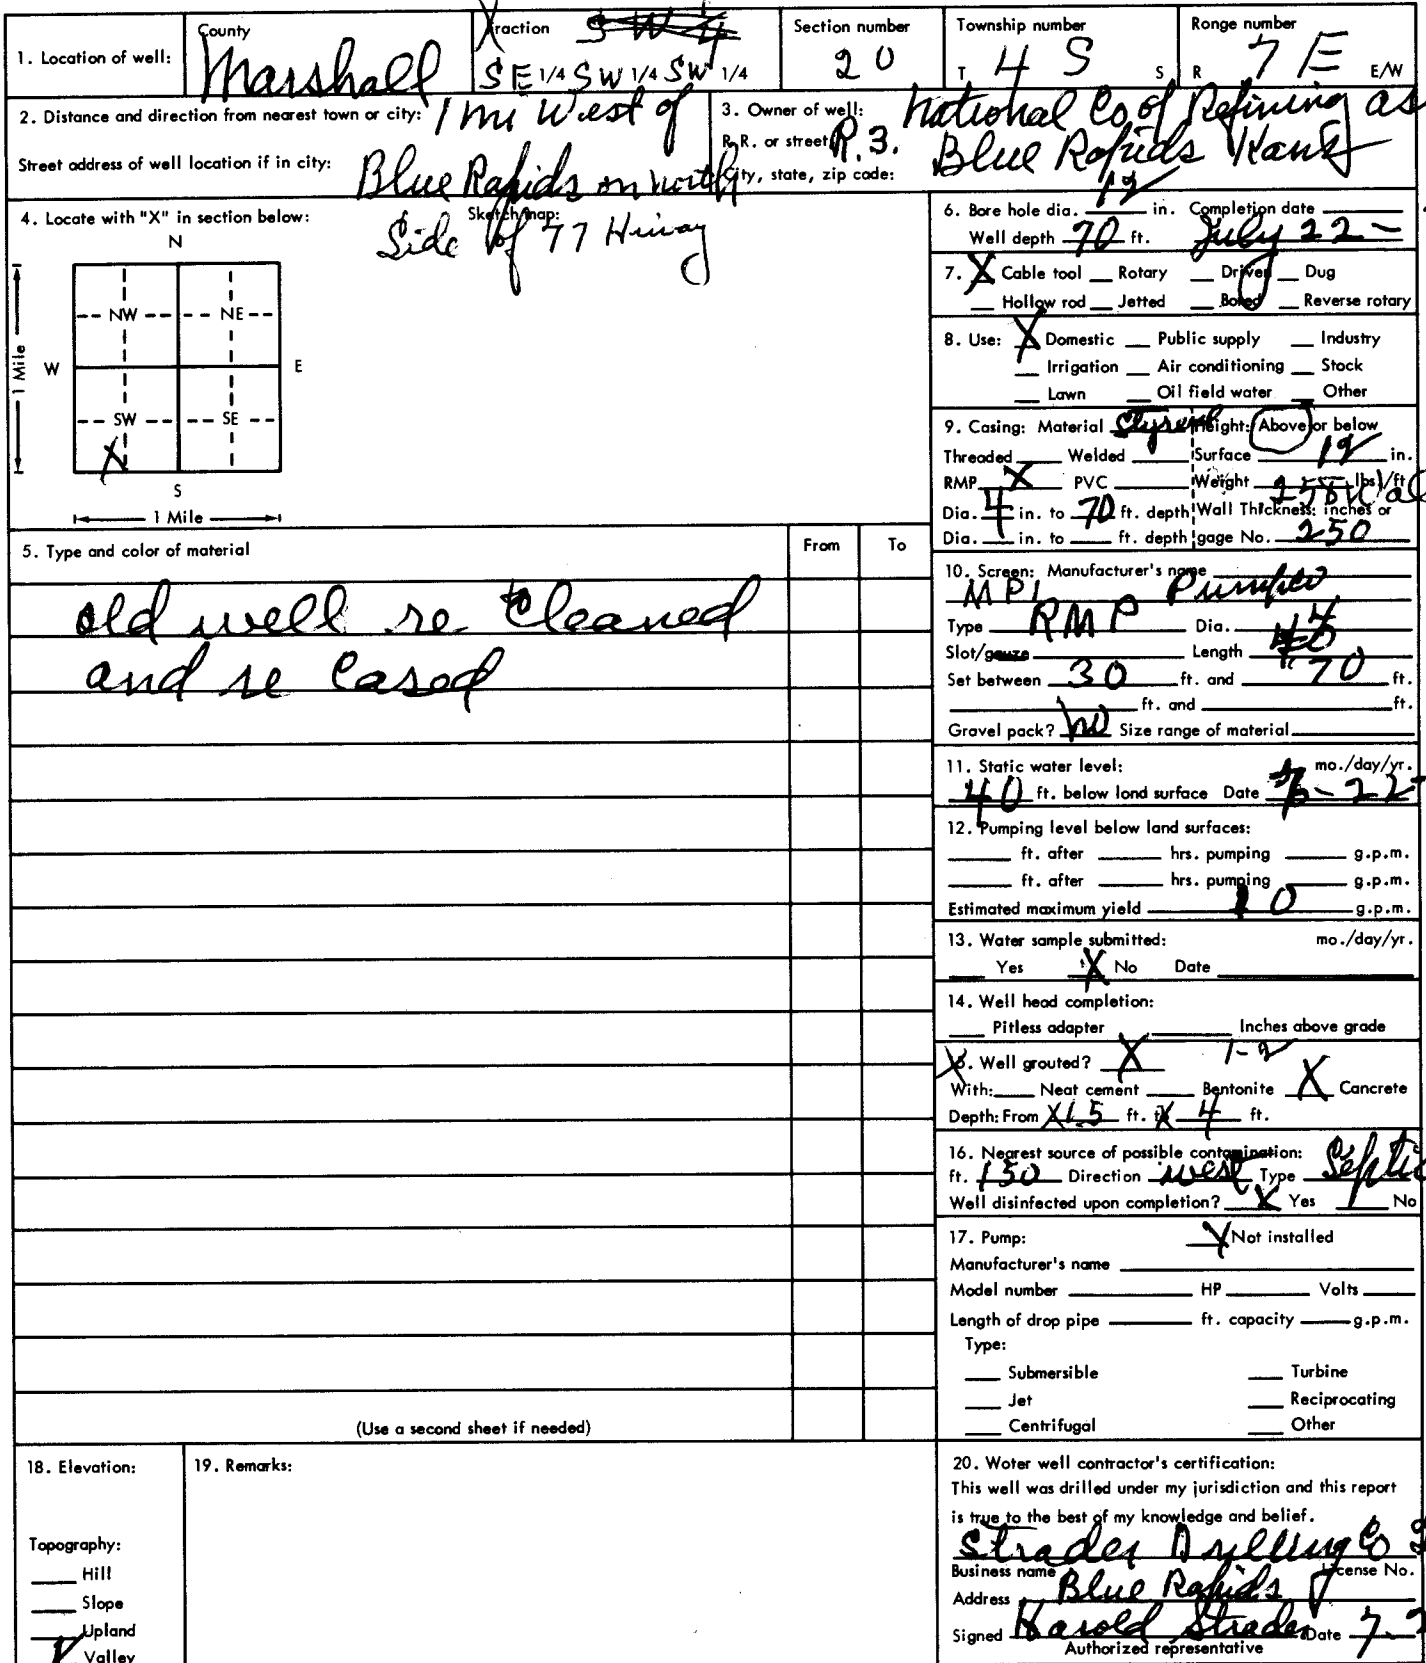 1. Location of well:
County
Marshall
Fraction S W 4
SE 1/4 SW 1/4 SW 1/4
Section number
20
Township number
T 4 S S
Ronge number
R 7 E E/W
2. Distance and direction from nearest town or city: 1 mi West of
Street address of well location if in city: Blue Rapids on north
Side of 77 Hiway
3. Owner of well: National Co of Refining as
R.R. or street R.3. Blue Rapids Kans
City, state, zip code:
4. Locate with "X" in section below:
Sketch map:
N
NW NE
W E
1 Mile
SW SE
X
S
1 Mile
5. Type and color of material
From To
old well re cleaned
and re cased
(Use a second sheet if needed)
6. Bore hole dia. 12 in. Completion date
Well depth 70 ft. July 22-
7. X Cable tool Rotary Driven Dug
Hollow rod Jetted Bored Reverse rotary
8. Use: X Domestic Public supply Industry
Irrigation Air conditioning Stock
Lawn Oil field water Other
9. Casing: Material Styrene Height: Above or below
Threaded Welded Surface 12 in.
RMP X PVC Weight lbs/ft
Dia. 4 in. to 70 ft. depth Wall Thickness: inches or
Dia. in. to ft. depth gage No. 250
10. Screen: Manufacturer's name
MPI Pumpco
Type RMP Dia. 4
Slot/gauze Length 40
Set between 30 ft. and 70 ft.
ft. and ft.
Gravel pack? no Size range of material
11. Static water level: mo./day/yr.
40 ft. below lond surface Date 7-22
12. Pumping level below land surfaces:
ft. after hrs. pumping g.p.m.
ft. after hrs. pumping g.p.m.
Estimated maximum yield 10 g.p.m.
13. Water sample submitted: mo./day/yr.
Yes X No Date
14. Well head completion:
Pitless adapter Inches above grade
15. Well grouted? X 1-2
With: Neat cement Bentonite X Concrete
Depth: From X1.5 ft. to 4 ft.
16. Nearest source of possible contamination:
ft. 150 Direction west Type Septic
Well disinfected upon completion? X Yes No
17. Pump: X Not installed
Manufacturer's name
Model number HP Volts
Length of drop pipe ft. capacity g.p.m.
Type:
Submersible Turbine
Jet Reciprocating
Centrifugal Other
18. Elevation:
Topography:
Hill
Slope
Upland
Valley
19. Remarks:
20. Woter well contractor's certification:
This well was drilled under my jurisdiction and this report
is true to the best of my knowledge and belief.
Strader Drilling Co
Business name License No.
Address Blue Rapids
Signed Harold Strader Date 7-2
Authorized representative